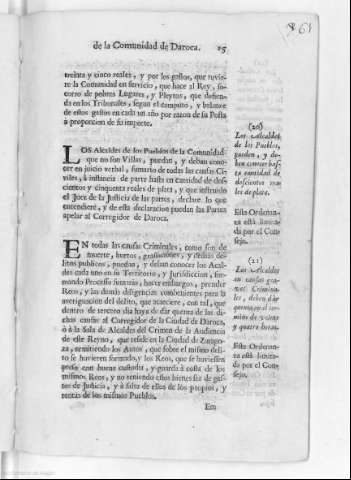 de la Comunidad de Daroca. 15
treinta y cinco reales, y por los gastos, que tuvie-
re la Comunidad en servicio, que hace al Rey, so-
corro de pobres Lugares, y Pleytos, que defien-
da en los Tribunales, segun el computo, y balance
de estos gastos en cada un año por razon de su Posta
à proporcion de su importe.
LOS Alcaldes de los Pueblos de la Comunidad,
que no son Villas, puedan, y deban cono-
cer en juicio verbal, sumario de todas las causas Ci-
viles, à instancia de parte hasta en cantidad de dos-
cientos y cinquenta reales de plata, y que instruido
el Juez de la Justicia de las partes, declare lo que
entendiere, y de esta declaracion puedan las Partes
apelar al Corregidor de Daroca.
EN todas las causas Criminales, como son de
muerte, hurtos, y demàs de-
litos publicos, puedan, y deban conocer los Alcal-
des cada uno en su Territorio, y Jurisdiccion, for-
mando Processo sumario, hasta embargos, prender
Reos, y las demás diligencias combenientes para la
averiguacion del delito, que acaeciere, con tal, que
dentro de tercero dia haya de dàr quenta de las di-
chas causas al Corregidor de la Ciudad de Daroca,
ò à la Sala de Alcaldes del Crimen de la Audiencia
de este Reyno, que reside en la Ciudad de Zarago-
za, remitiendo los Autos, que sobre el mismo deli-
to se huvieren formado, y los Reos, que se huviessen
preso con buena custodia, y guarda à costa de los
mismos Reos, y no teniendo estos bienes sea de gas-
tos de Justicia, y à falta de ellos de los propios, y
rentas de los mismos Pueblos.
Em
(20)
Los Alcaldes
de los Pueblos,
pueden, y de-
ben conocer has-
ta cantidad de
doscientos rea-
les de plata.
Esta Ordenan-
za està limita-
da por el Con-
sejo.
(21)
Los Alcaldes
en causas gra-
ves Crimina-
les, deben dàr
quenta en el ter-
mino de veinte
y quatro horas.
Esta Ordenan-
za està limita-
da por el Con-
sejo.